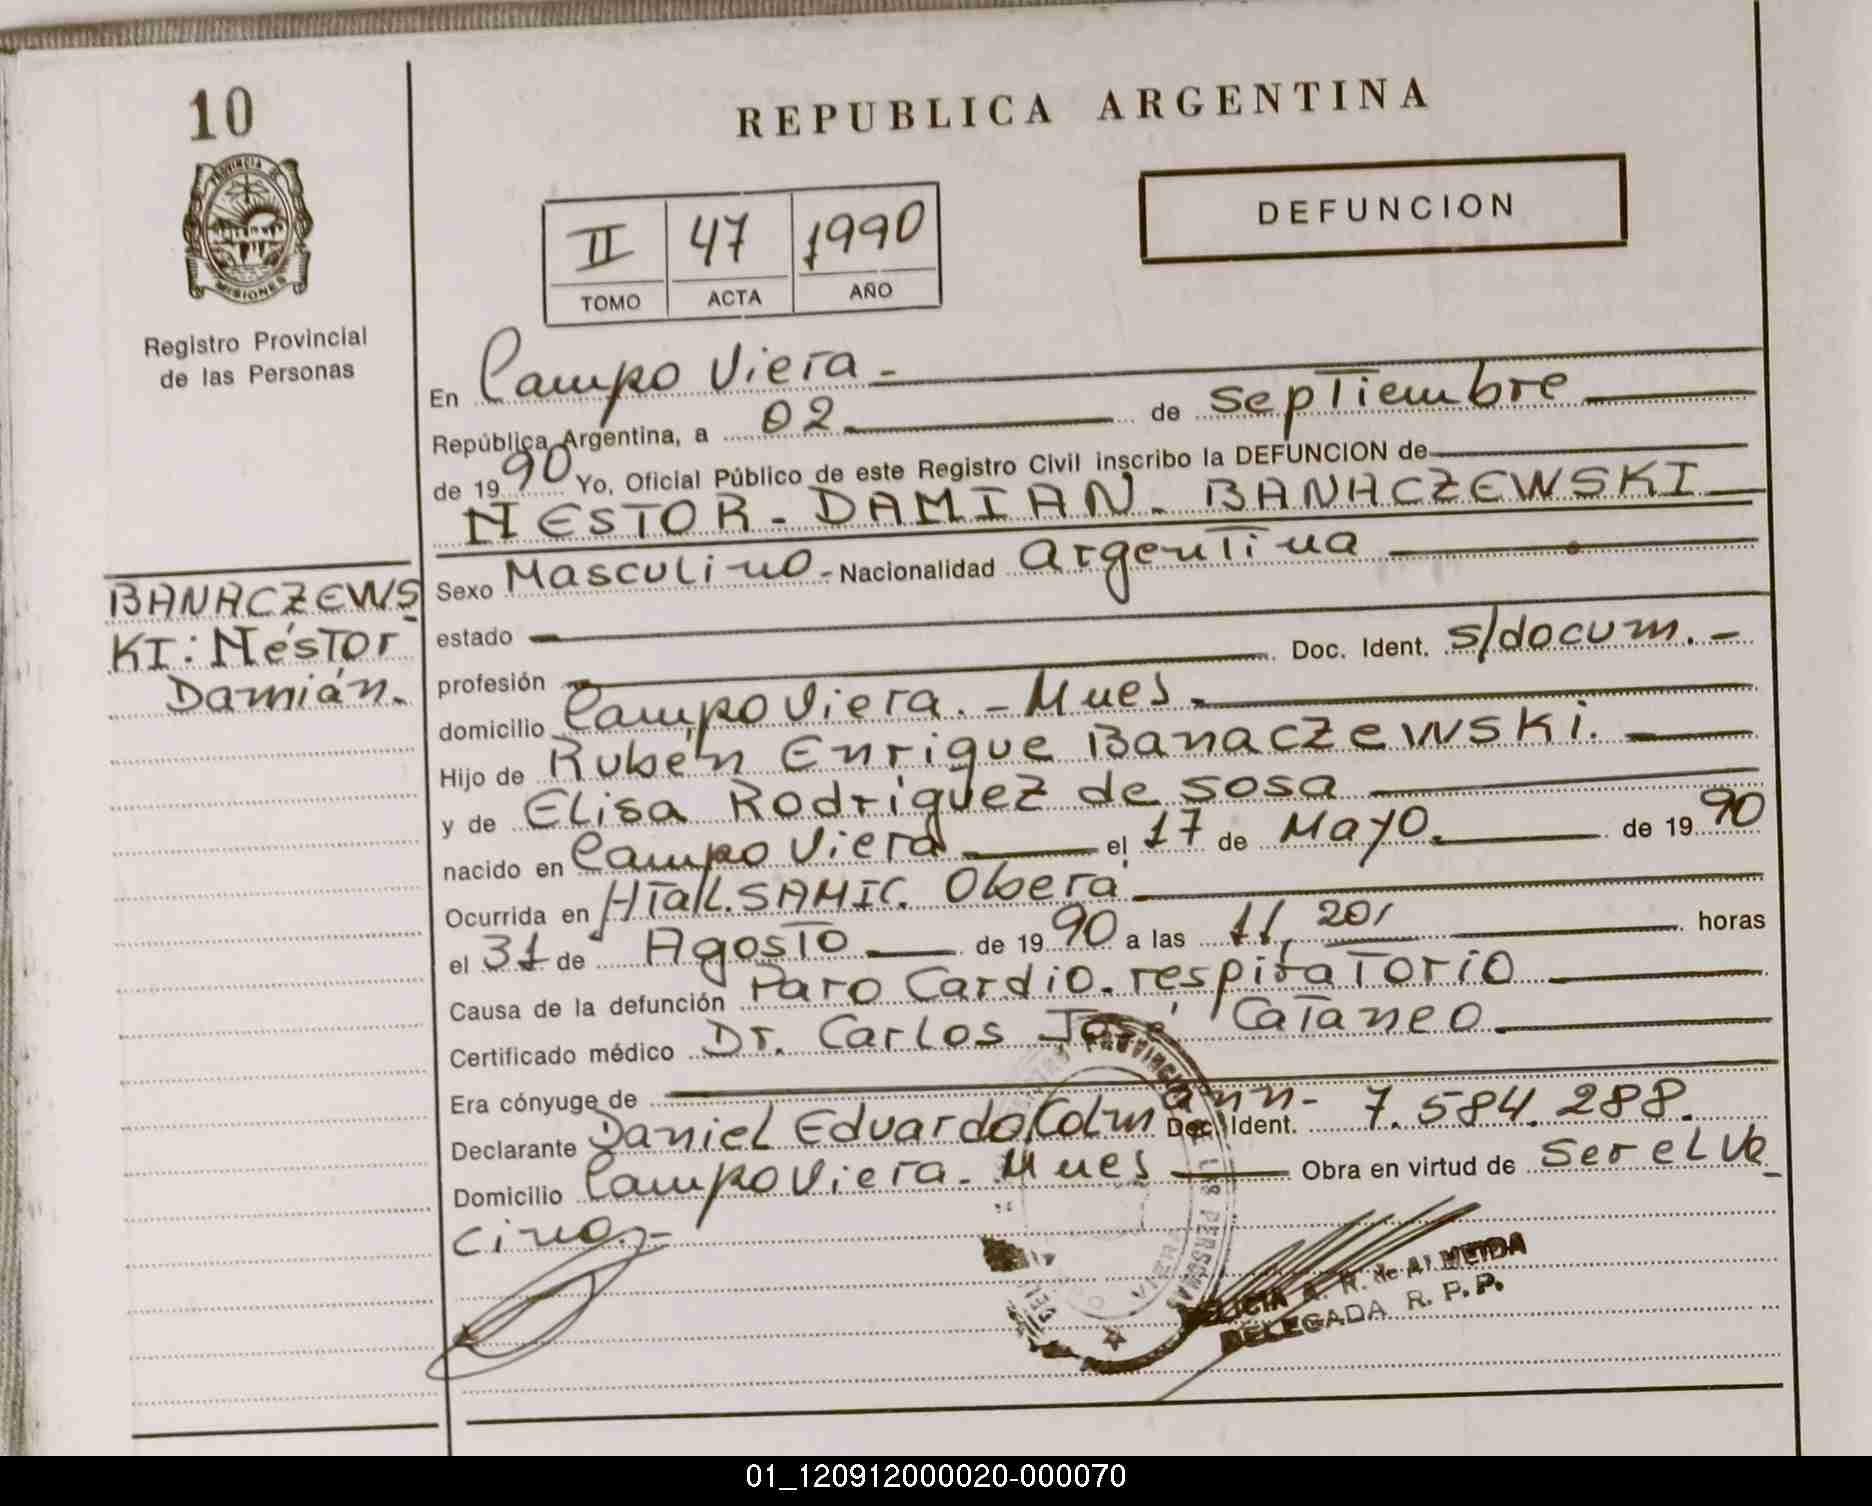 10
PROVINCIA DE
MISIONES
Registro Provincial
de las Personas
REPUBLICA ARGENTINA
II 47 1990
TOMO ACTA AÑO
DEFUNCION
En Campo Viera -
República Argentina, a 02 de septiembre
de 1990 Yo, Oficial Público de este Registro Civil inscribo la DEFUNCION de
NESTOR - DAMIAN - BANACZEWSKI
BANACZEWS
KI: Néstor
Damián.
Sexo Masculino - Nacionalidad argentina
estado
Doc. Ident. s/docum. -
profesión
domicilio Campo Viera. - Mnes.
Hijo de Rubén Enrique Banaczewski.
y de Elisa Rodríguez de sosa
nacido en Campo Viera el 17 de Mayo. de 1990
Ocurrida en Htal. SAMIC. Oberá
el 31 de Agosto de 1990 a las 11,20, horas
Causa de la defunción Paro Cardio-respiratorio
Certificado médico Dr. Carlos José Cataneo
Era cónyuge de
Declarante Daniel Eduardo Kolmann - Doc. Ident. 7.584.288.
Domicilio Campo Viera - Mnes Obra en virtud de ser el ve
cino. -
A. R. de ALMEIDA
DELEGADA R. P. P.
01_120912000020-000070